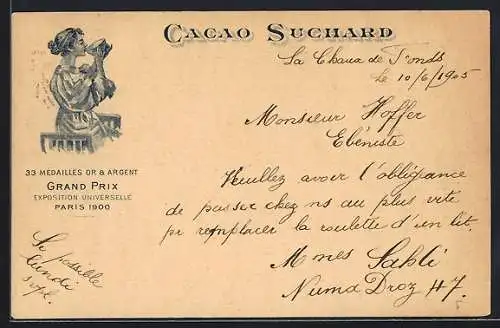 CACAO SUCHARD
La Chaux de Fonds
le 10/6/1905
Monsieur Hoffer
Ebéniste
Veuillez avoir l'obligeance
de passer chez ns au plus vite
pr remplacer la roulette d'un lit.
Mmes Sahli
Numa Droz 47.
33 MEDAILLES OR & ARGENT
GRAND PRIX
EXPOSITION UNIVERSELLE
PARIS 1900
Si possible
lundi
svpl.